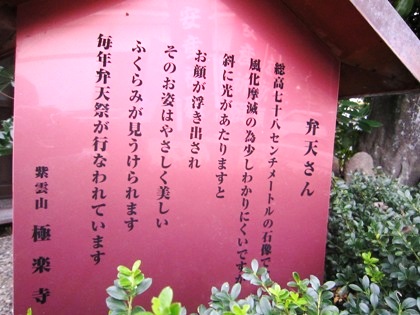 弁天さん
総高七十八センチメートルの石像で
風化摩滅の為少しわかりにくいです
斜に光があたりますと
お顔が浮き出され
そのお姿はやさしく美しい
ふくらみが見うけられます
毎年弁天祭が行なわれています
紫雲山 極楽寺